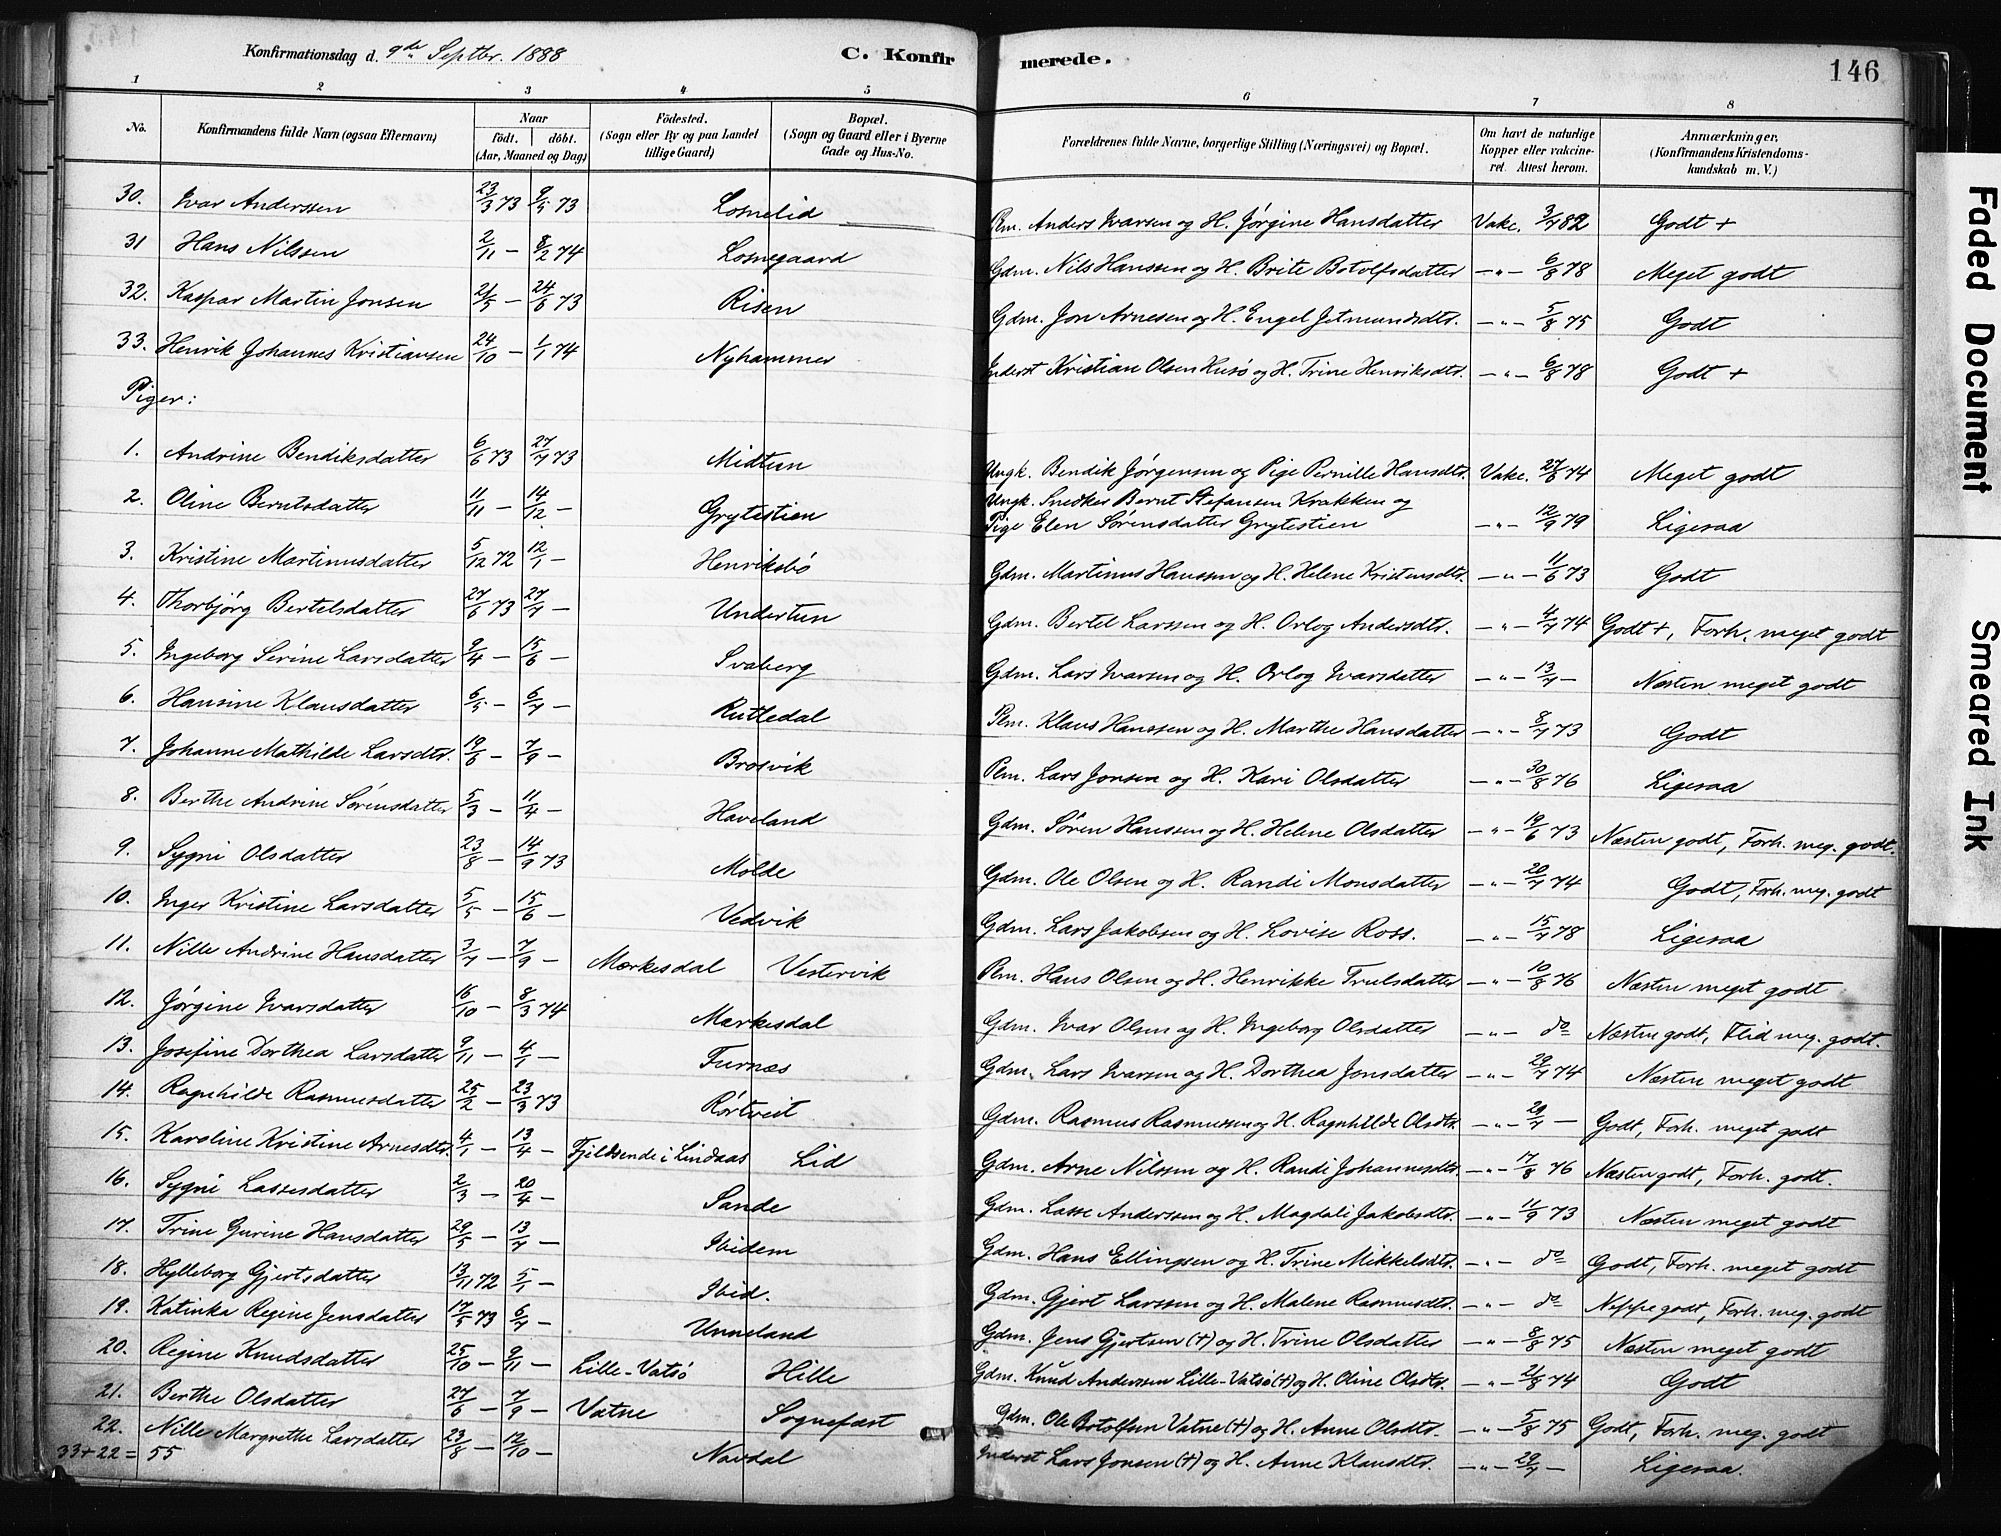 Konfirmationsdag d. 9de Septbr. 1888 C. Konfirmerede. 146
1 2 3 4 5 6 7 8
No. Konfirmandens fulde Navn (ogsaa Efternavn) Naar Født. døbt. (Aar, Maaned og Dag) Fødested. (Sogn eller By og paa Landet tillige Gaard) Bopæl. (Sogn og Gaard eller i Byerne Gade og Hus-No. Forældrenes fulde Navne, borgerlige Stilling (Næringsvei) og Bopæl. Om havt de naturlige Kopper eller vakcineret. Attest herom. Anmærkninger. (Konfirmandens Kristendomskundskab m. V.)
30. Ivar Anderssen 23/3 73 9/5 73 Losnelid Plm. Anders Ivarsen og H. Jørgine Hansdatter Vakc. 3/7 82 Godt +
31 Hans Nilssen 2/11 – 8/2 74 Losnegaard Gdm. Nils Hanssen og H. Brite Botolfsdatter – " – 6/8 78 Meget godt
32. Kaspar Martin Jonsen 21/5 – 24/6 73 Risen Gdm. Jon Arnesen og H. Engel Jetmundsdtr. – " – 5/8 75 Godt
33. Henrik Johannes Kristiansen 24/10 – 1/1 74 Nyhammer Inderst Kristian Olsen Husø og H. Trine Henriksdtr. – " – 6/8 78 Godt +
Piger:
1. Andrine Bendiksdatter 6/6 73 27/7 73 Midtun Ungk. Bendik Jørgensen og Pige Pernille Hansdtr. Vakc. 27/6 74 Meget godt
2. Oline Berntsdatter 11/11 – 14/12 – Grytestien Ungk. Snedker Bernt Stefansen Krakken og
Pige Elen Sørensdatter Grytestien – " – 12/9 79 Ligesaa
3. Kristine Martinusdatter 5/12 72 12/1 – Henriksbø Gdm. Martinus Hanssen og H. Helene Kristensdtr. – " – 11/6 73 Godt
4. Thorbjørg Bertelsdatter 27/6 73 27/7 – Undertun Gdm. Bertel Larssen og H. Orlog Andersdtr. – " – 4/7 74 Godt +, Forh. meget godt
5. Ingeborg Serine Larsdatter 9/4 – 15/6 – Svaberg Gdm. Lars Ivarsen og H. Orlog Ivarsdatter – " – 13/7 – Næsten meget godt
6. Hansine Klausdatter 6/5 – 6/7 – Rutledal Plm. Klaus Hanssen og H. Marthe Hansdatter – " – 8/7 73 Godt
7. Johanne Mathilde Larsdtr. 19/6 – 7/9 – Brosvik Plm. Lars Jonsen og H. Kari Olsdatter – " – 30/8 76 Ligesaa
8. Berthe Andrine Sørensdatter 5/3 – 11/4 – Haveland Gdm. Søren Hanssen og H. Helene Olsdatter – " – 19/6 73 Næsten godt, Forh. meg. godt.
9. Sygni Olsdatter 23/8 – 14/9 73 Molde Gdm. Ole Olsen og H. Randi Monsdatter – " – 20/7 74 Godt, Forh. meg. godt
10. Inger Kristine Larsdatter 5/5 – 15/6 – Vedvik Gdm. Lars Jakobsen og H. Lovise Ross. – " – 15/7 78 Ligesaa
11. Nille Andrine Hansdatter 3/7 – 7/9 – Mærkesdal Vestervik Plm. Hans Olsen og H. Henrikke Trulsdatter – " – 10/8 76 Næsten meget godt
12. Jørgine Ivarsdatter 16/10 – 8/3 74 Mærkesdal Gdm. Ivar Olsen og H. Ingeborg Olsdatter – " – do Næsten godt, Flid meg. godt.
13. Josefine Dorthea Larsdatter 9/11 – 4/1 – Furnæs Gdm. Lars Ivarsen og H. Dorthea Jonsdatter – " – 29/7 74 Næsten meget godt
14. Ragnhilde Rasmusdatter 25/2 – 23/3 73 Rørtveit Gdm. Rasmus Rasmussen og H. Ragnhilde Olsdtr. – " – 29/7 – Godt, Forh. meget godt
15. Karoline Kristine Arnesdtr. 4/1 – 13/4 – Fjeldsende i Lindaas Lid Gdm. Arne Nilssen og H. Randi Johannesdtr. – " – 17/8 76 Næsten godt, Forh. godt.
16. Sygni Lassesdatter 2/3 – 20/4 – Sande Gdm. Lasse Anderssen og H. Magdali Jakobsdtr. – " – 11/9 73 Næsten meget godt
17. Trine Gurine Hansdatter 29/5 – 13/7 – Ibidem Gdm. Hans Ellingsen og H. Trine Mikkelsdtr. – " – do Godt, Forh. meget godt
18. Hylleborg Gjertsdatter 13/11 72 5/1 – Ibid. Gdm. Gjert Larssen og H. Malene Rasmusdtr. – " – do Neppe godt, Forh. meg. godt
19. Katinka Regine Jensdatter 17/5 73 6/7 – Unneland Gdm. Jens Gjertsen (+) og H. Trine Olsdatter – " – 8/8 75 Næsten meget godt
20. Regine Knudsdatter 25/10 – 9/11 – Lille-Vatsø Hille Gdm. Knud Anderssen Lille-Vatsø (+) og H. Oline Olsdtr. – " – 21/8 74 Godt
21. Berthe Olsdatter 27/6 – 7/9 – Vatne Sognefæst Gdm. Ole Botolfsen Vatne (+) og H. Anne Olsdtr. – " – 5/8 75 Godt, Forh. meg. godt
22. Nille Margrethe Larsdatter 23/8 – 12/10 – Navdal Inderst Lars Jonsen (+) og H. Anne Klausdtr. – " – 29/7 – Ligesaa.
33+22 = 55
Faded Document
Smeared Ink